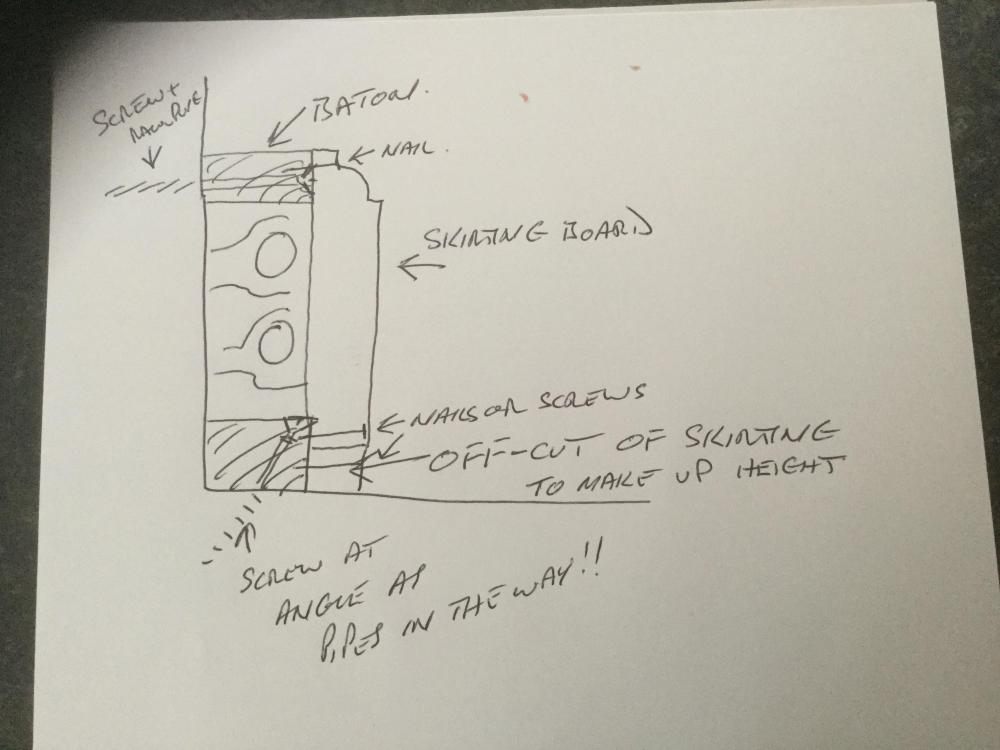 SCREW +
RAWLPLUG
BATON.
NAIL.
SKIRTING BOARD
NAILS OR SCREWS
OFF-CUT OF SKIRTING
TO MAKE UP HEIGHT
SCREW AT
ANGLE AS
PIPES IN THE WAY!!